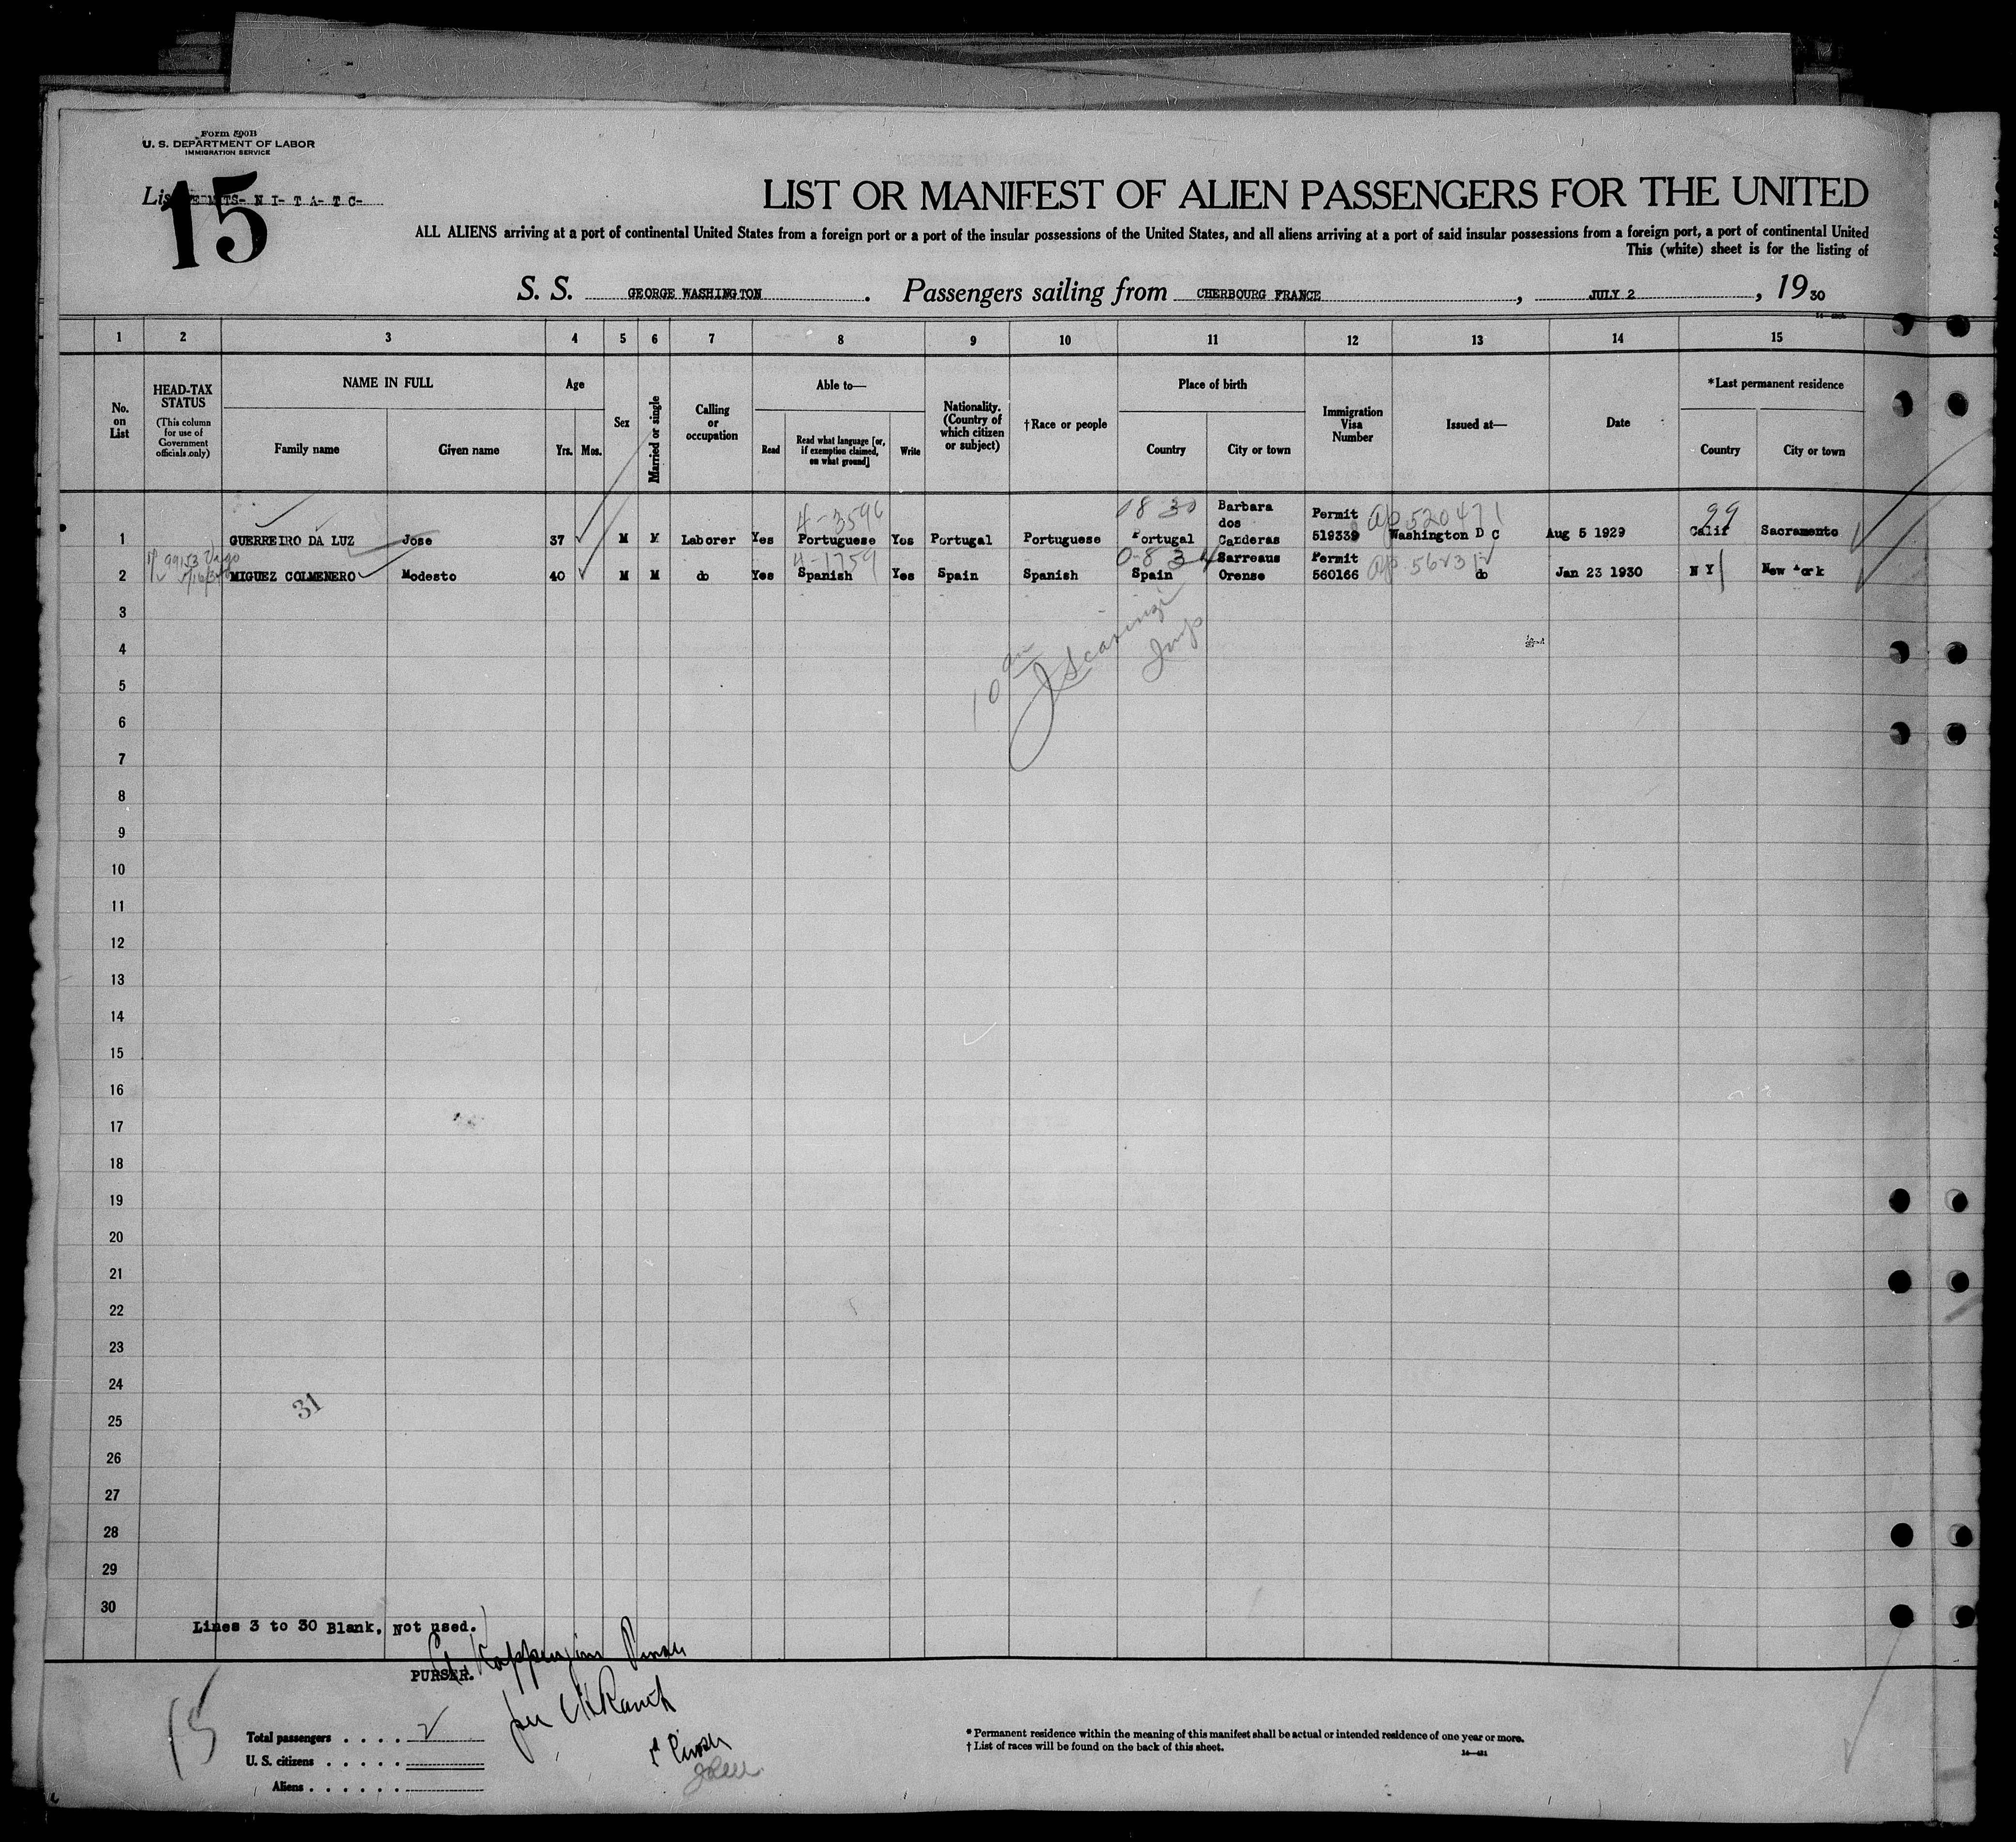 Form 500B
U. S. DEPARTMENT OF LABOR
IMMIGRATION SERVICE
15
N I- T A- T C-
LIST OR MANIFEST OF ALIEN PASSENGERS FOR THE UNITED
ALL ALIENS arriving at a port of continental United States from a foreign port or a port of the insular possessions of the United States, and all aliens arriving at a port of said insular possessions from a foreign port, a port of continental United
This (white) sheet is for the listing of
S. S. GEORGE WASHINGTON . Passengers sailing from CHERBOURG FRANCE , JULY 2 , 19 30
1 2 3 4 5 6 7 8 9 10 11 12 13 14 15
No. on List
HEAD-TAX STATUS
(This column for use of Government officials only)
NAME IN FULL
Family name Given name
Age
Yrs. Mos.
Sex
Married or single
Calling or occupation
Able to—
Read
Read what language [or, if exemption claimed, on what ground]
Write
Nationality. (Country of which citizen or subject)
†Race or people
Place of birth
Country City or town
Immigration Visa Number
Issued at—
Date
*Last permanent residence
Country City or town
4-3596 08 30 Barbara Permit 520471 99
dos
1 GUERREIRO DA LUZ Jose 37 M M Laborer Yes Portuguese Yes Portugal Portuguese Portugal Canderas 519339 Washington D C Aug 5 1929 Calif Sacramento
99153 4-1759 Sarreaus Permit
2 MIGUEZ COLMENERO Modesto 40 M M do Yes Spanish Yes Spain Spanish Spain Orense 560166 do Jan 23 1930 N Y New York
3
4
5
6
7
8
9
10
11
12
13
14
15
16
17
18
19
20
21
22
23
24
25
26
27
28
29
30
10 am
J Scarinzi
Insp
31
Lines 3 to 30 Blank. Not used.
PURSER.
per
15
Total passengers . . . . 2
U. S. citizens . . . . .
Aliens . . . . . .
* Permanent residence within the meaning of this manifest shall be actual or intended residence of one year or more.
† List of races will be found on the back of this sheet.